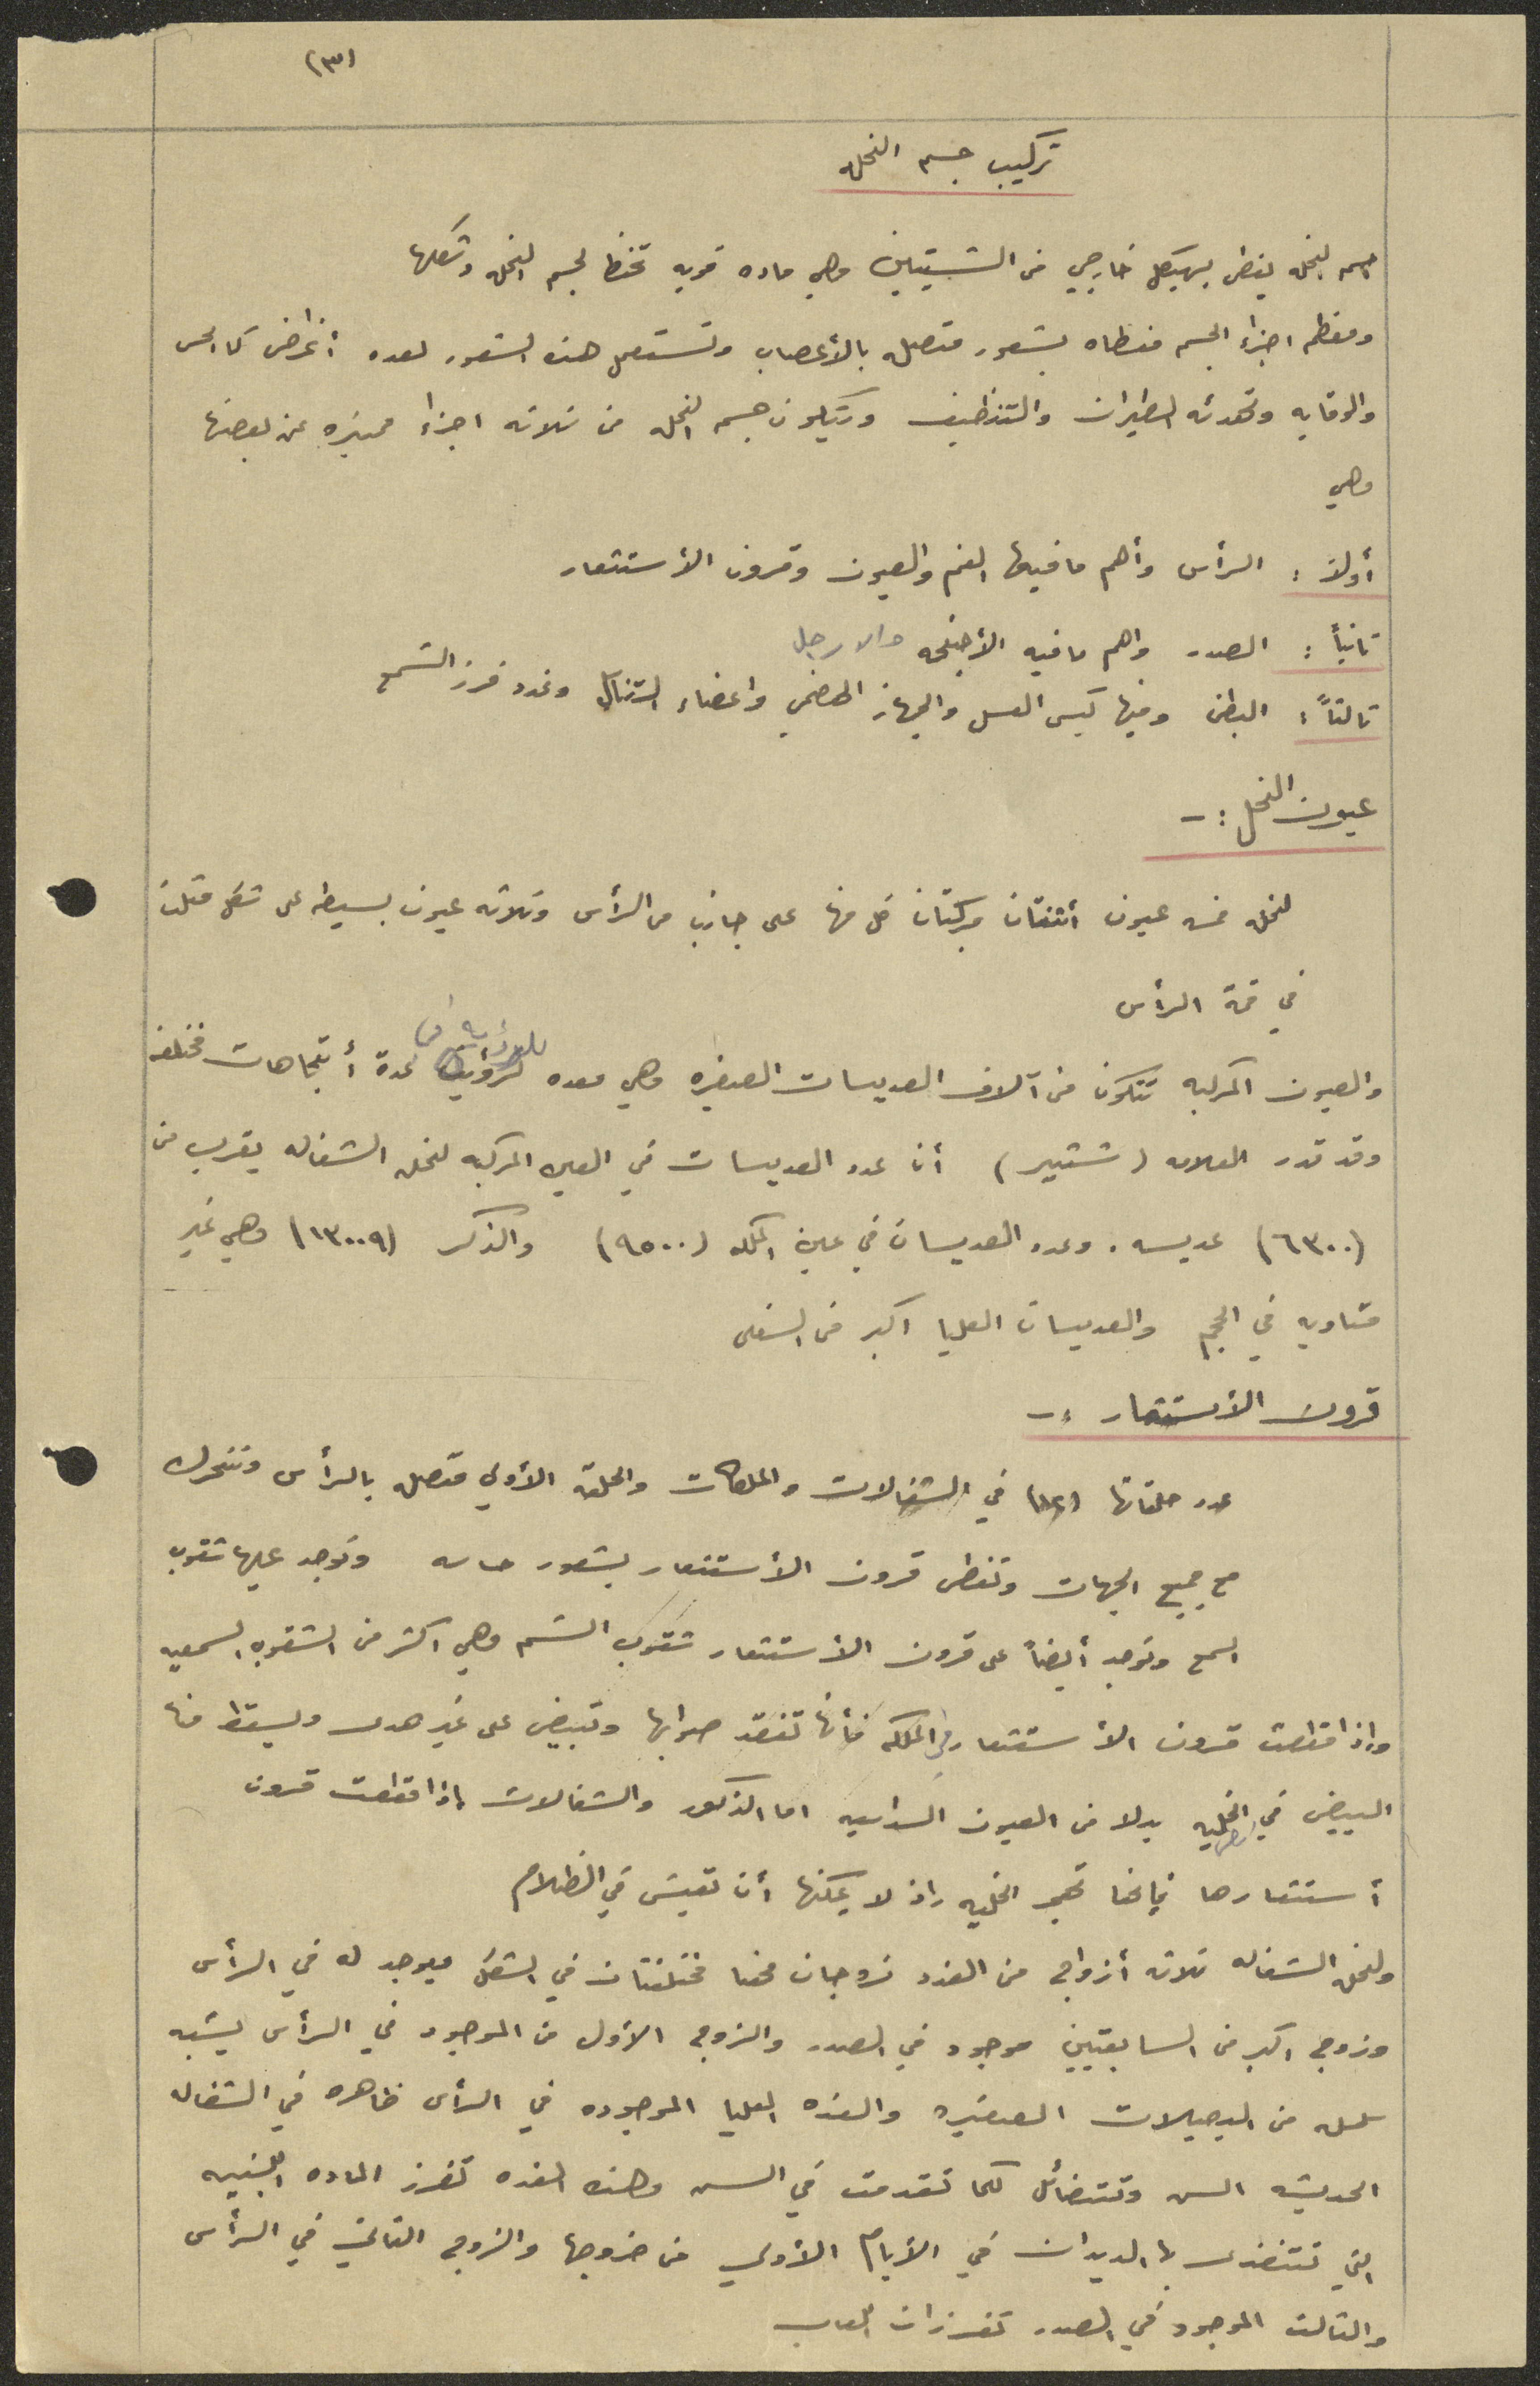 (٣)
تركيب جسم النحله
جسم النحله يغطى بهيكل خارجي من الشيتين وهي ماده قويه تحفظ لجسم النحله وشكلها
ومعظم اجزاء الجسم مغطاه بشعور متصله بالأعصاب وتستعمل هذه الشعور لعده أغراض كالحس
والوقايه وتهدئه الطيران والتنظيف ويتكون جسم النحله من ثلاثه اجزاء مميزه عن بعضها
وهي
أولاً : الرأس وأهم ما فيها الفم والعيون وقرون الأستشعار
ثانياً : الصدر واهم ما فيه الأجنحه والارجل
ثالثاً : البطن وفيها كيس العسل والجهاز الهضمي واعضاء التناسل وغدد فرز الشمع
عيون النحل :-
لنحله خمسه عيون أثنتان مركبتان كل منها على جانب من الرأس وثلاثه عيون بسيطه على شكل مثلث
في قمة الرأس
والعيون المركبه تتكون من آلاف العديسات الصغيره وهي معده للرؤيه من عدة أتجاهات مختلفه
وقد قدر العلامه (شتير) أن عدد العديسات في العين المركبه لنحله الشغاله يقرب من
(٦٣٠٠) عديسه . وعدد العديسات في عين الملكه (٩٥٠٠) والذكر (١٣٠٠٩) وهي غير
متساويه في الحجم والعديسات العليا اكبر من السفلى
قرون الأستشعار :-
عدد حلقاتها (١٢) في الشغالات والملكات والحلقة الأولي متصله بالرأس وتتحرك
مع جميع الجهات وتغطى قرون الأستشعار بشعور حاسه وتوجد عليها ثقوب
السمع وتوجد أيضاً على قرون الأستشعار ثقوب الشم وهي اكثر من الثقوب السمعيه
واذا قطعت قرون الأستشعار في الملكه فأنها تفقد صوابها وتبيض على غير هدى ويسقط منها
البيض في الخليه بدلا من العيون السداسيه اما الذكور والشغالات إذا قطعت قرون
أستشعارها فإنها تهجر الخليه إذ لا يمكنها أن تعيش في الظلام
ولنحله الشغاله ثلاثه أزواج من الغدد زوجان منها مختلفتان في الشكل ويوجد له في الرأس
وزوج اكبر من السابقتين موجود في الصدر والزوج الأول من الموجود في الرأس يشبه
سلسله من البصيلات الصغيره والغده العليا الموجوده في الرأس ظاهره في الشغاله
الحديثه السن وتتضائل كلما تقدمت في السن وهذه الغده تفرز الماده اللبنيه
التي تتغذى بها الديدان في الأيام الأولي من خروجها والزوج الثاني في الرأس
والثالث الموجود في الصدر تفرزان اللعاب